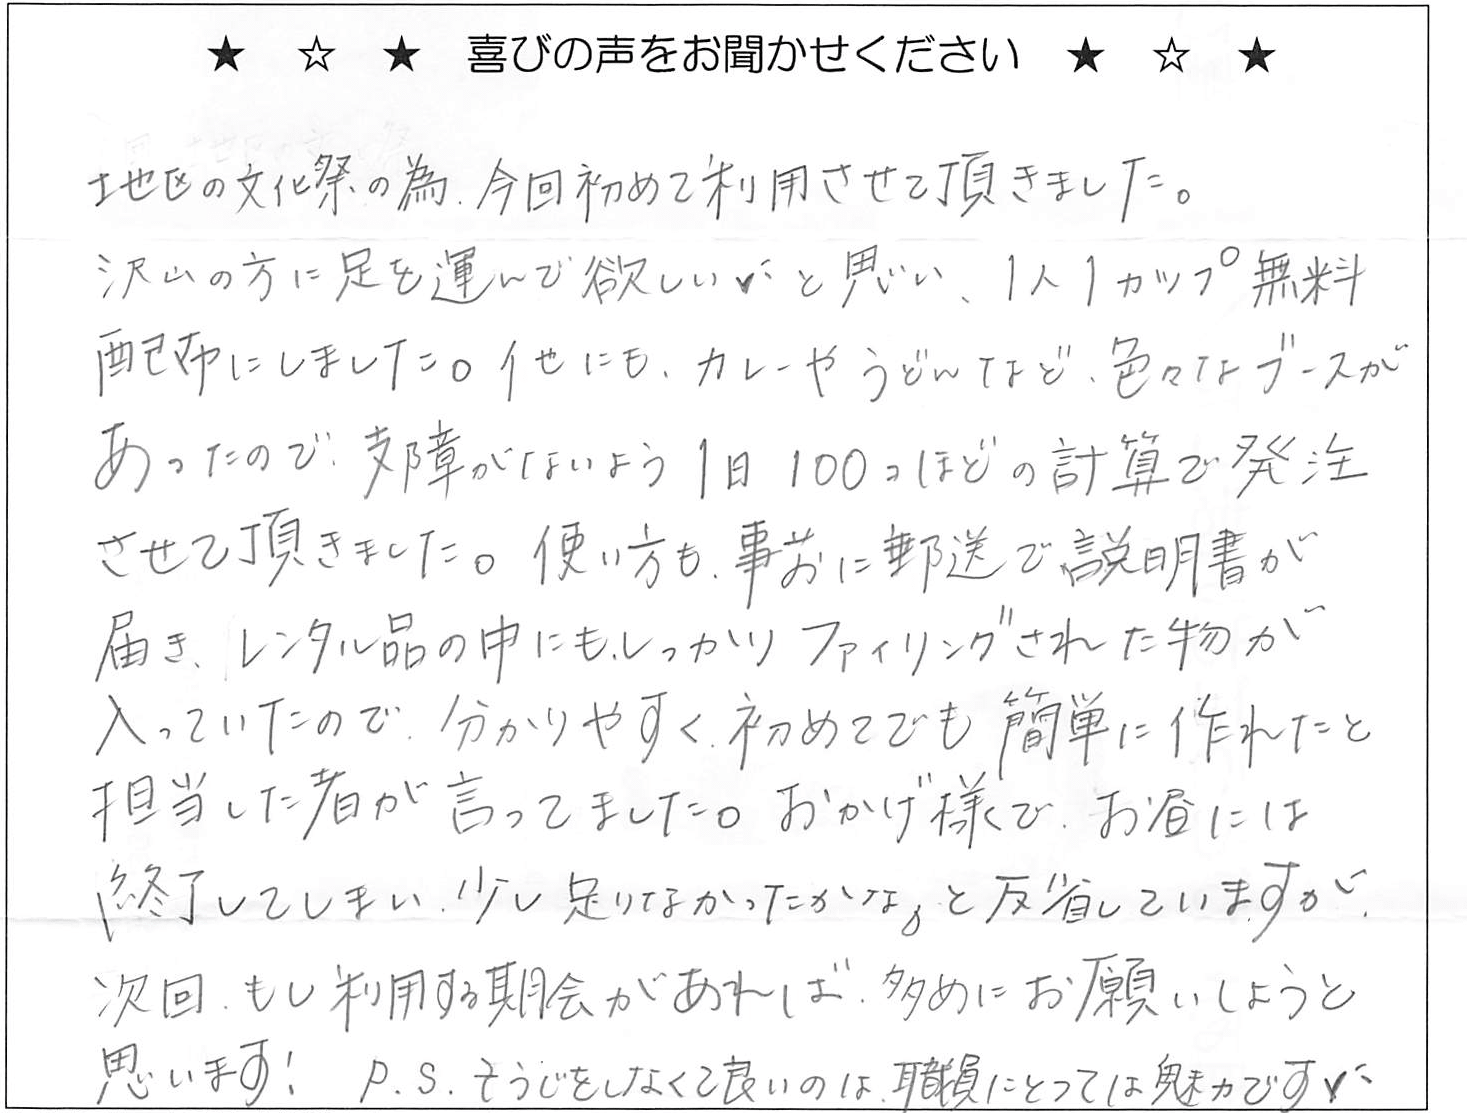 ★ ☆ ★ 喜びの声をお聞かせください ★ ☆ ★
地区の文化祭の為、今回初めて利用させて頂きました。
沢山の方に足を運んで欲しい♥と思い、1人1カップ無料
配布にしました。他にも、カレーやうどんなど、色々なブースが
あったので、支障がないよう1日100コほどの計算で発注
させて頂きました。使い方も、事前に郵送で説明書が
届き、レンタル品の中にも、しっかりファイリングされた物が
入っていたので、分かりやすく、初めてでも簡単に作れたと
担当した者が言ってました。おかげ様で、お昼には
終了してしまい、少し足りなかったかな、と反省していますが、
次回、もし利用する期会があれば、多めにお願いしようと
思います! P.S.そうじをしなくて良いのは、職員にとっては魅力です♥